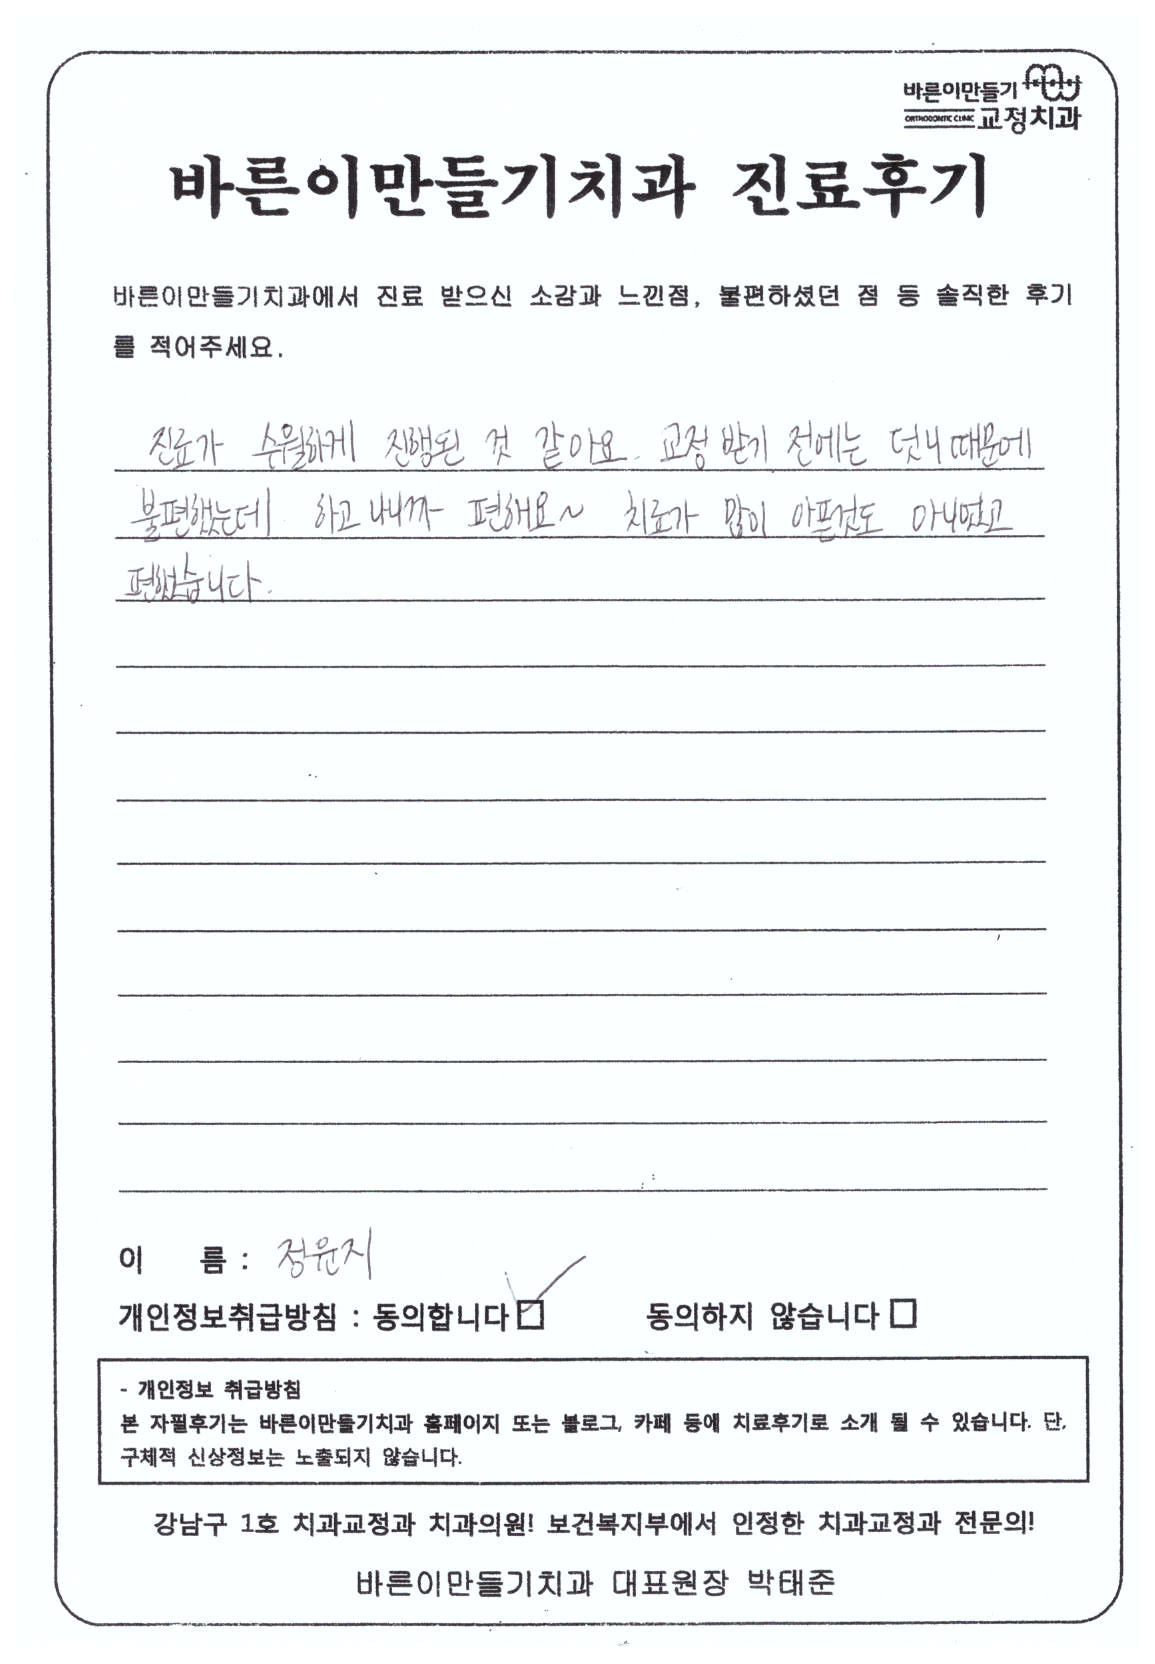 바른이만들기
ORTHODONTIC CLINIC 교정치과
바른이만들기치과 진료후기
바른이만들기치과에서 진료 받으신 소감과 느낀점, 불편하셨던 점 등 솔직한 후기
를 적어주세요.
진료가 수월하게 진행된 것 같아요. 교정 받기 전에는 덧니 때문에
불편했는데 하고 나니까 편해요~ 치료가 많이 아픈것도 아니었고
편했습니다.
이 름 : 정윤지
개인정보취급방침 : 동의합니다 ☑ 동의하지 않습니다 □
- 개인정보 취급방침
본 자필후기는 바른이만들기치과 홈페이지 또는 블로그, 카페 등에 치료후기로 소개 될 수 있습니다. 단,
구체적 신상정보는 노출되지 않습니다.
강남구 1호 치과교정과 치과의원! 보건복지부에서 인정한 치과교정과 전문의!
바른이만들기치과 대표원장 박태준